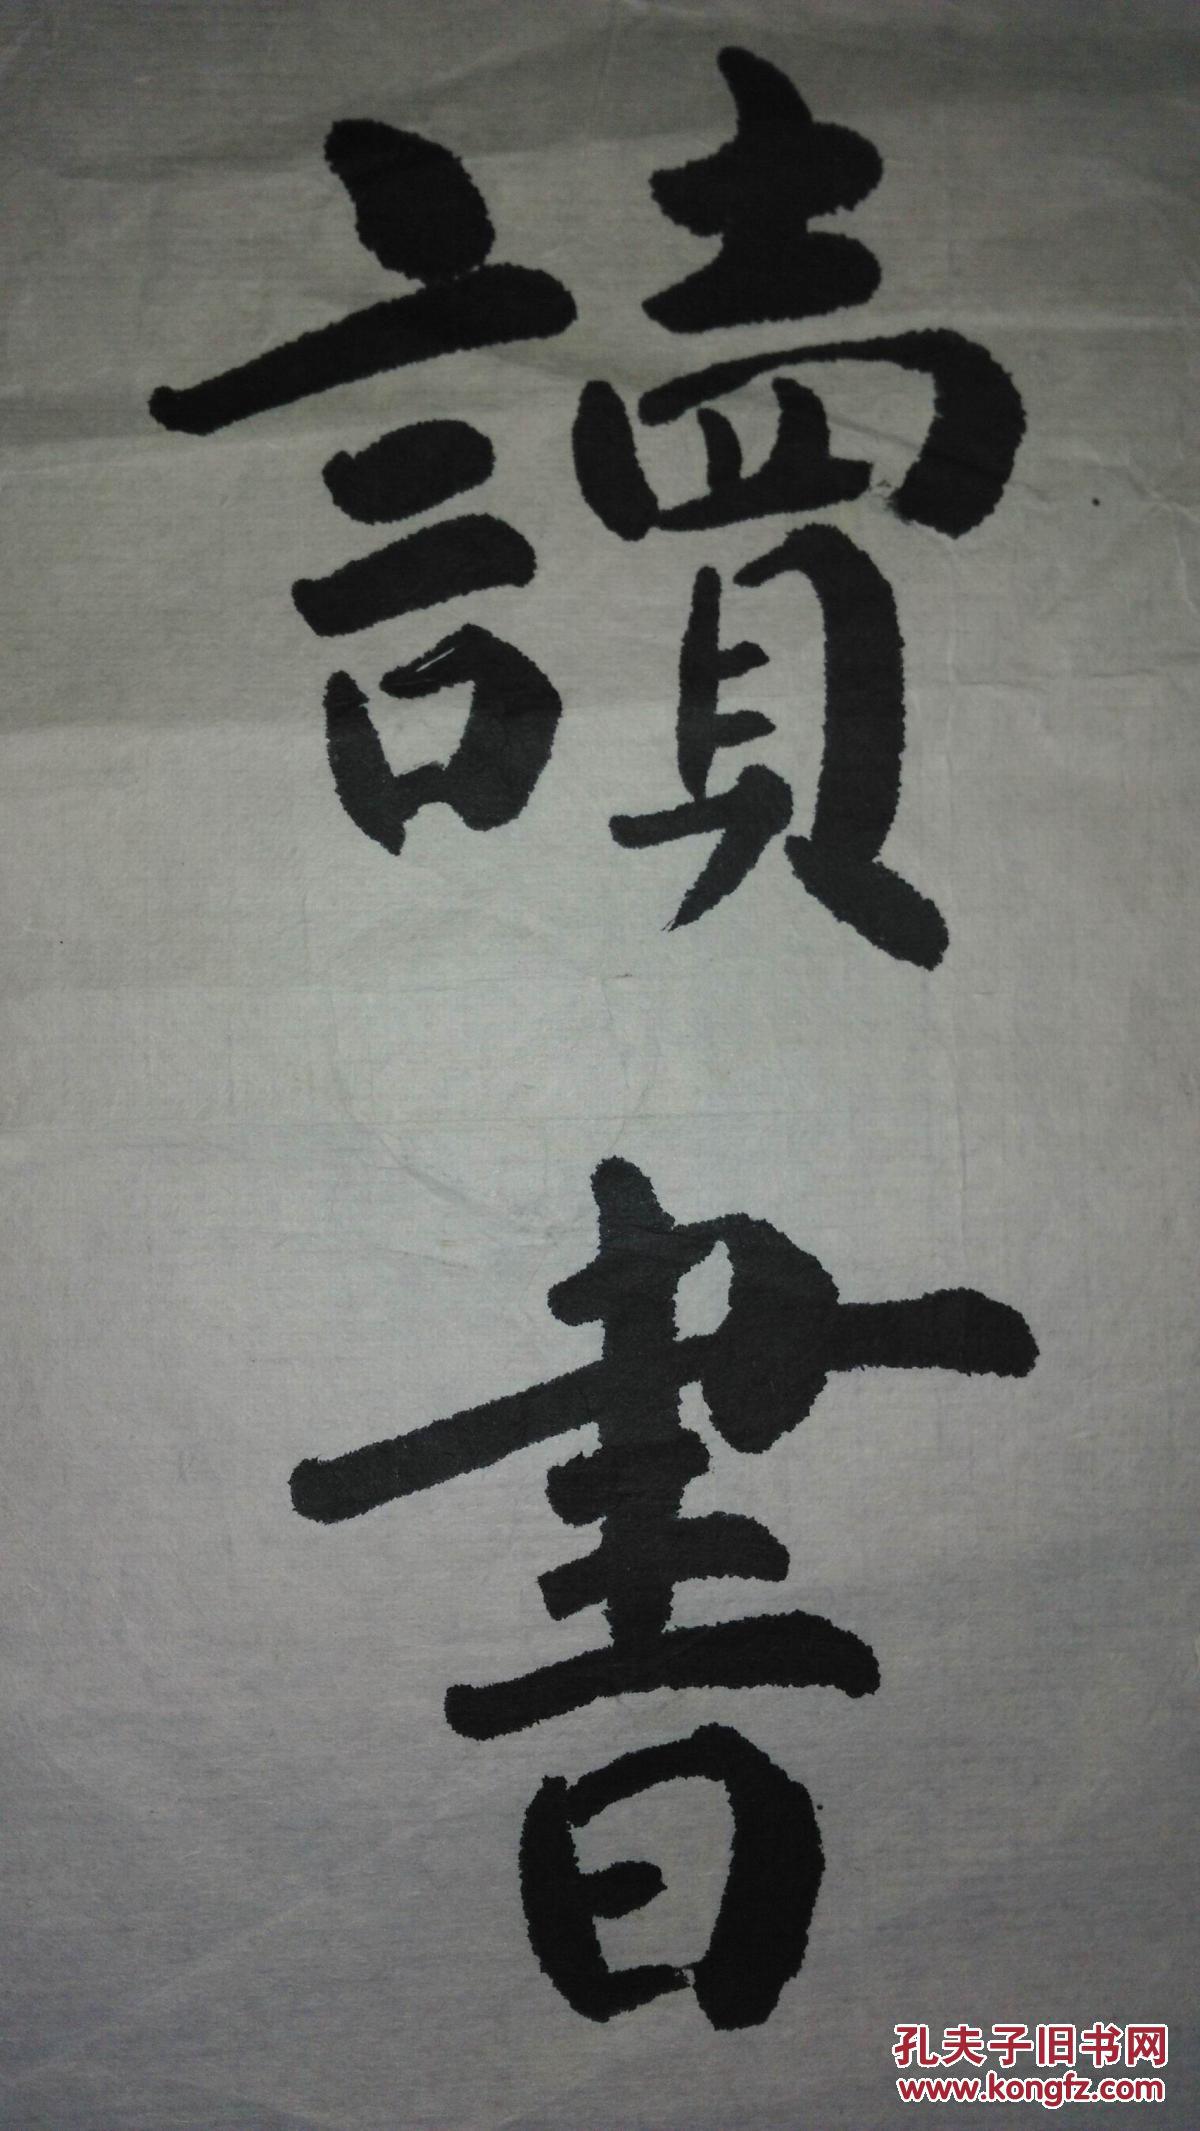 讀
書
孔夫子旧书网
www.kongfz.com